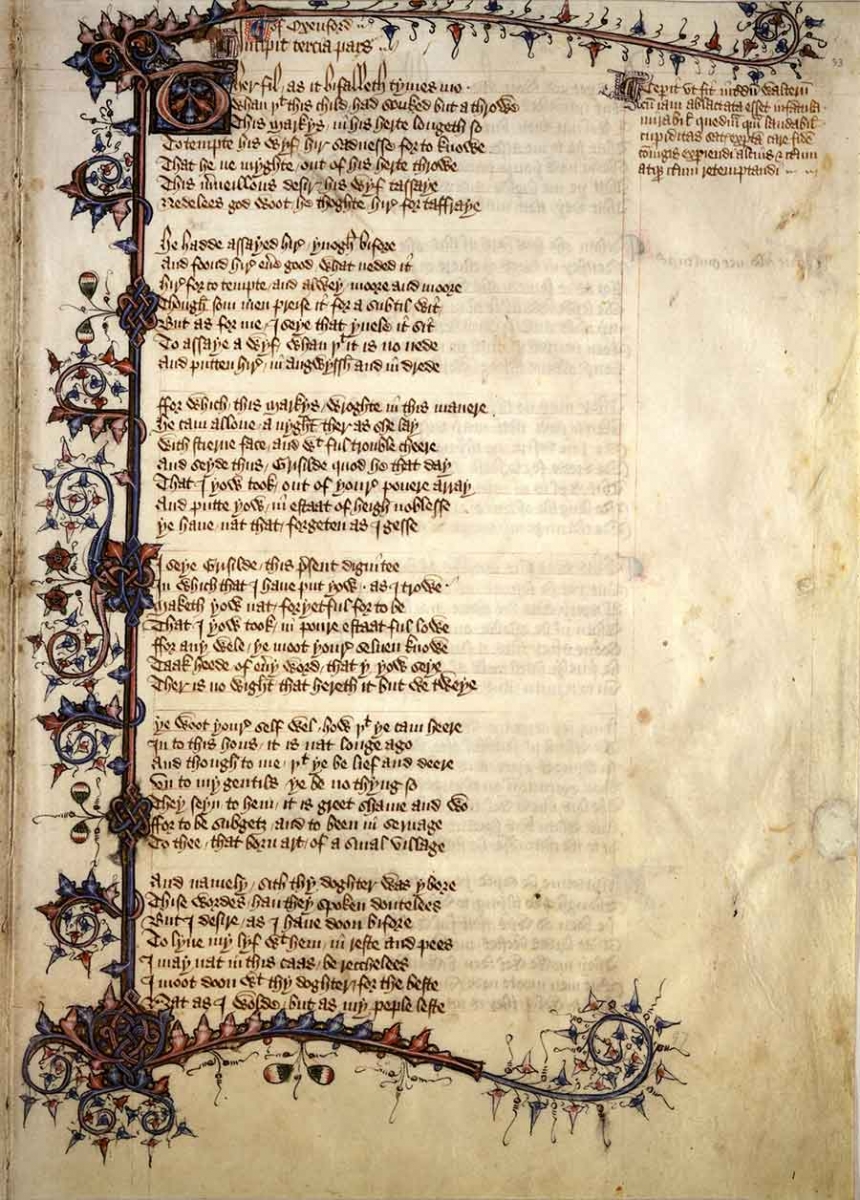 Of Oxenford
Incipit tercia pars
Ther fil, as it bifalleth tymes mo
Whan þt this child, had souked but a throwe
This Markys, in his herte longeth so
To tempte his wyf, hir sadnesse for to knowe
That he ne myghte, out of his herte throwe
This m̅ueillous desir, his wyf tassaye
Nedelees god woot, he thoghte hir for taffraye
He hadde assayed hir, ynogh bifore
And foond hir eu̅e good, what neded it
Hir for to tempte, and alwey moore and moore
Though som men preise it for a subtil wit
But as for me, I seye that yuele it sit
To assaye a wyf, whan þt it is no nede
And putten hir, in angwyssh and in drede
ffor which this Markys, wroghte in this manere
He cam allone, a nyght ther as she lay
With stierne face, and wt ful trouble cheere
And seyde thus, Grisilde quod he that day
That I yow took, out of youre pouere array
And putte yow, in estaat of heigh noblesse
Ye haue nat that, forgeten as I gesse
I seye Grisilde, this p̅sent dignitee
In which that I haue put yow, as I trowe
Maketh yow nat, foryetful for to be
That I yow took, in poure estaat ful lowe
ffor any wele, ye moot youre seluen knowe
Taak heede of eu̅y word, that y yow seye
Ther is no wight, that hereth it but we tweye
Ye woot youre self wel, how þt ye cam heere
In to this hous, it is nat longe ago
And though to me, þt ye be lief and deere
Vn to my gentils, ye be no thyng so
They seyn to hem, it is greet shame and wo
ffor to be subgetz, and to been in seruage
To thee, that born art, of a smal village
And namely, sith thy doghter was ybore
Thise wordes, han they spoken doutelees
But I desire, as I haue doon bifore
To lyue my lyf wt hem, in reste and pees
I may nat in this caas, be recchelees
I moot doon wt thy doghter, for the beste
Nat as I wolde, but as my peple leste
Cepit vt fit int̅dum Walteru̅
cu̅ iam ablactata esset infantula
mirabil̕ quedam
cupiditas
atq̕ it̅um retemptandi
53